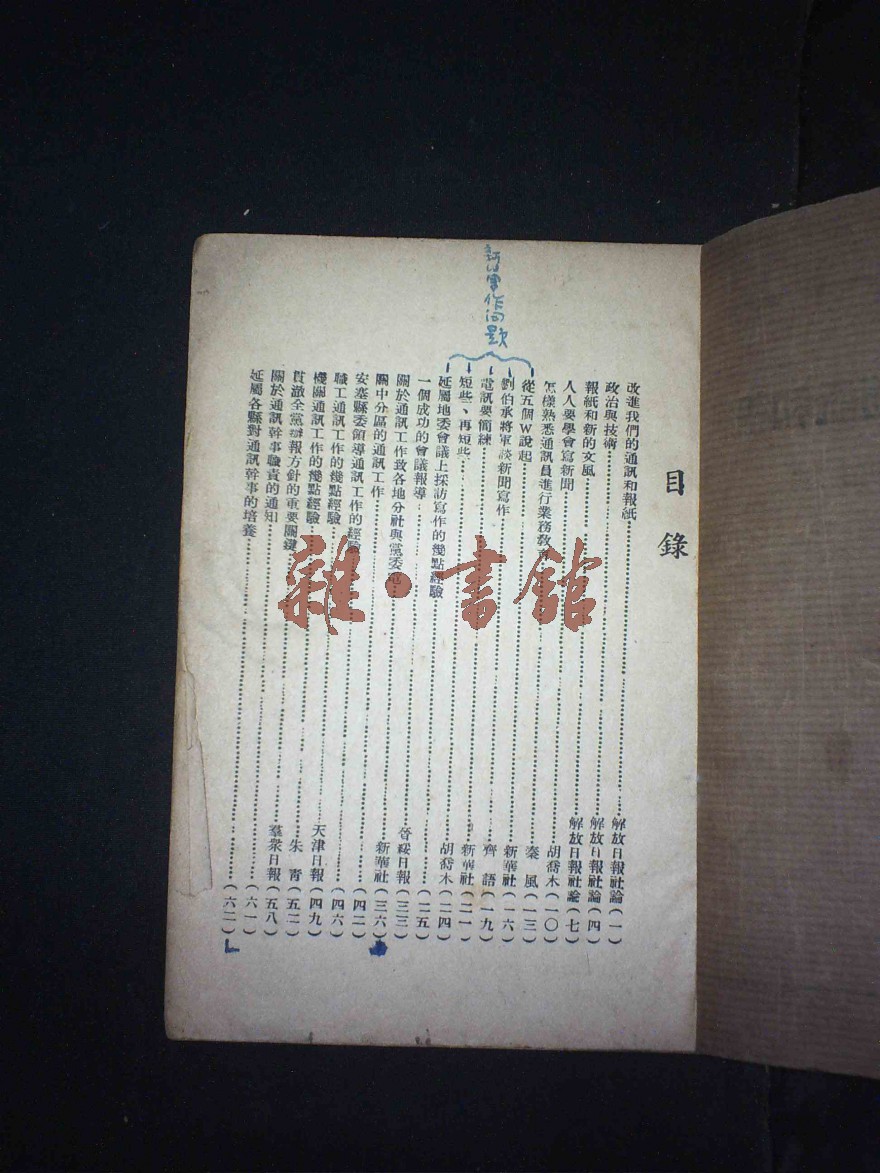 目錄
改進我們的通訊和報紙……解放日報社論(一)
政治與技術……解放日報社論(四)
報紙和新的文風……解放日報社論(七)
人人要學會寫新聞……胡喬木(一〇)
怎樣熟悉通訊員進行業務教育……秦風(一三)
從五個W說起……新華社(一六)
劉伯承將軍談新聞寫作……齊語(一九)
電訊要簡練……新華社(二一)
短些、再短些……胡喬木(二四)
延屬地委會議上採訪寫作的幾點經驗……(二五)
一個成功的會議報導……晉綏日報(三三)
關於通訊工作致各地分社與黨委電……新華社(三六)
關中分區的通訊工作……(四二)
安塞縣委領導通訊工作的經驗……(四六)
職工通訊工作的幾點經驗……天津日報(四九)
機關通訊工作的幾點經驗……朱青(五二)
貫澈全黨辦報方針的重要關鍵……羣衆日報(五八)
關於通訊幹事職責的通知……(六一)
延屬各縣對通訊幹事的培養……(六二)
寫作問題
雜·書館